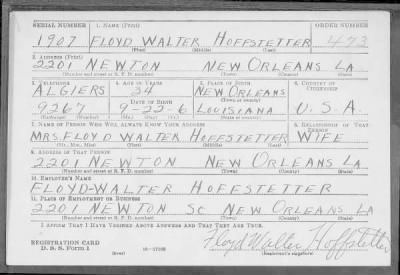 SERIAL NUMBER 1. NAME (Print) ORDER NUMBER
1907 FLOYD WALTER HOFFSTETTER 473
(First) (Middle) (Last)
2. ADDRESS (Print)
2201 NEWTON NEW ORLEANS LA
(Number and street or R. F. D. number) (Town) (County) (State)
3. TELEPHONE 4. AGE IN YEARS 5. PLACE OF BIRTH 6. COUNTRY OF CITIZENSHIP
ALGIERS 34 NEW ORLEANS
DATE OF BIRTH (Town or county)
9267 9-22-6 LOUISIANA U.S.A.
(Exchange) (Number) (Mo.) (Day) (Yr.) (State or country)
7. NAME OF PERSON WHO WILL ALWAYS KNOW YOUR ADDRESS 8. RELATIONSHIP OF THAT PERSON
MRS. FLOYD WALTER HOFFSTETTER WIFE
(Mr., Mrs., Miss) (First) (Middle) (Last)
9. ADDRESS OF THAT PERSON
2201 NEWTON NEW ORLEANS LA
(Number and street or R. F. D. number) (Town) (County) (State)
10. EMPLOYER'S NAME
FLOYD-WALTER HOFFSTETTER
11. PLACE OF EMPLOYMENT OR BUSINESS
2201 NEWTON NEW ORLEANS LA
(Number and street or R. F. D. number) (Town) (County) (State)
I AFFIRM THAT I HAVE VERIFIED ABOVE ANSWERS AND THAT THEY ARE TRUE.
REGISTRATION CARD
D. S. S. Form 1 (over) Floyd Walter Hoffstetter
(Registrant's signature)